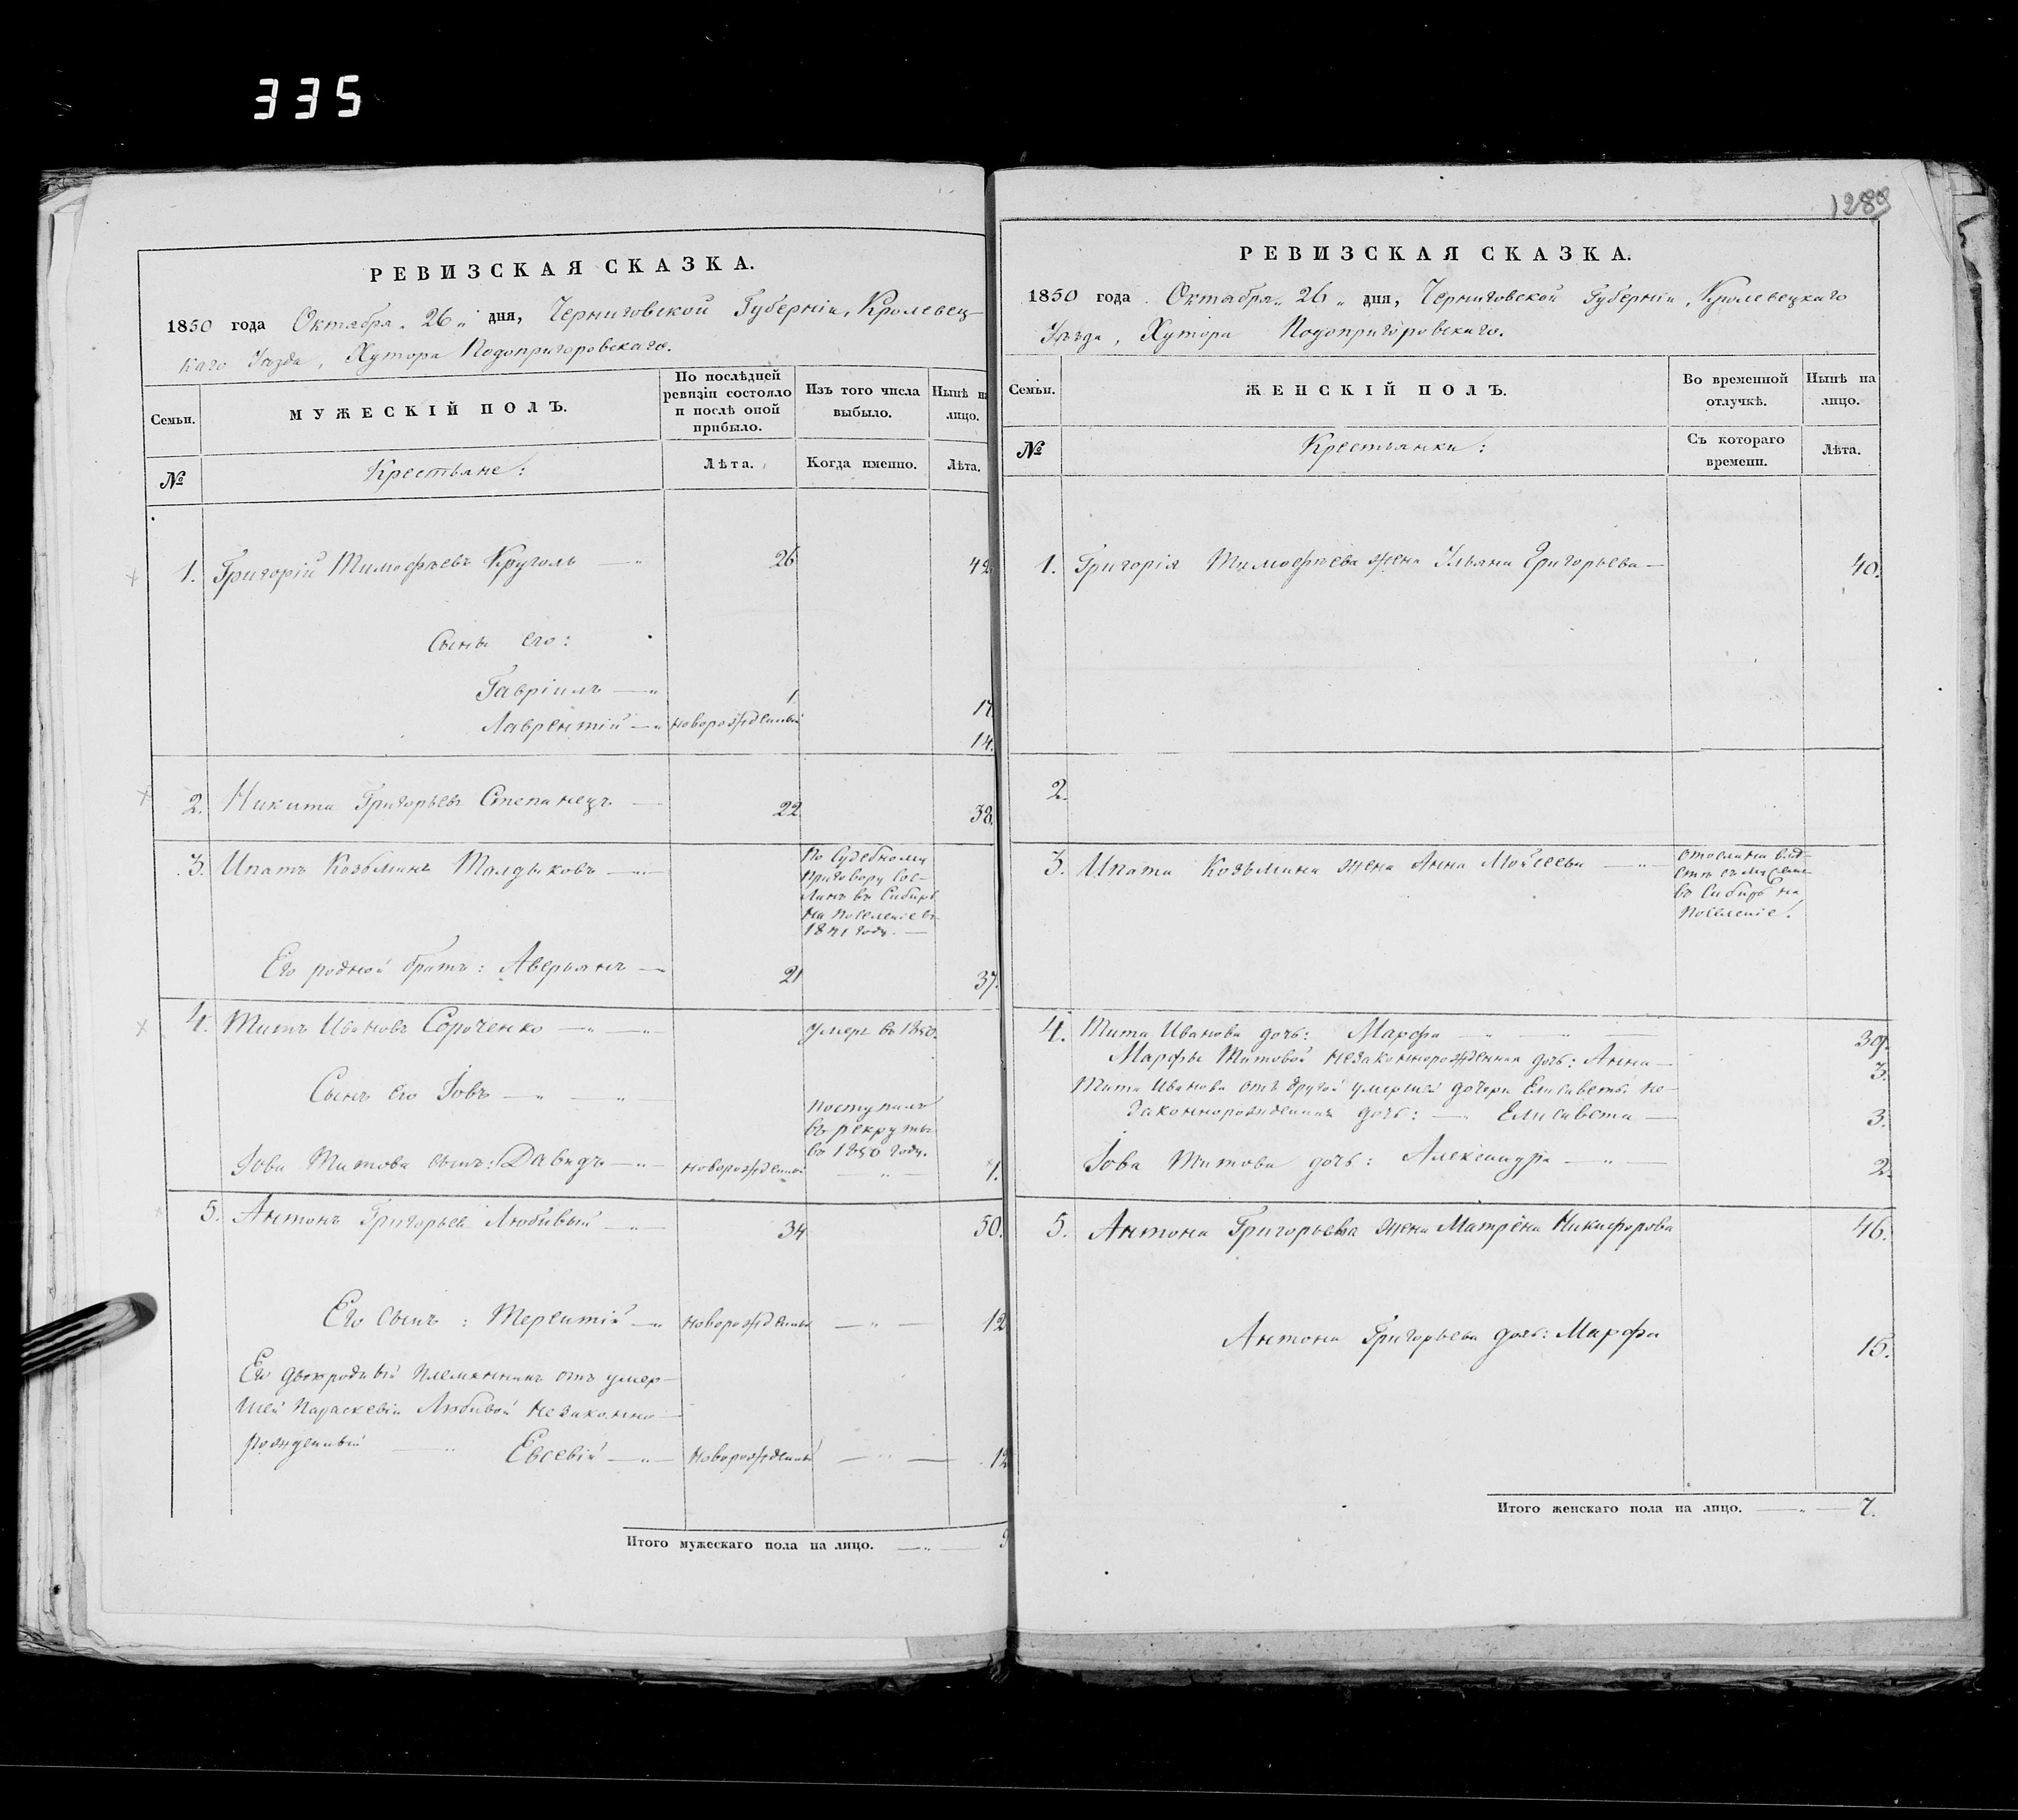 335
РЕВИЗСКАЯ СКАЗКА.
1850 года Октября „ 26 „ дня, Черниговской Губерніи, Кролевец-
каго Уѣзда, Хутора Подопригоровскаго.
Семьи.
МУЖЕСКІЙ ПОЛЪ.
По послѣдней
ревизіи состояло
и послѣ оной
прибыло.
Изъ того числа
выбыло.
Нынѣ на
лицо.
№
Крестьяне:
Лѣта.
Когда именно.
Лѣта.
1. Григорій Тимофѣевъ Круголь — „ 26 42.
Сыны его:
Гавріилъ — „ 1 17.
Лаврентій — „ новорожденный 14.
2. Никита Григорьевъ Степанецъ — 22 38.
3. Ипатъ Козьминъ Толдыковъ — „ —
По Судебному
приговору сос-
ланъ въ Сибирь
на поселеніе въ
1841 году. —
Его родной братъ: Аверьянъ — 21 37.
4. Титъ Ивановъ Сороченко — „ — „ умеръ въ 1850.
Сынъ его Іовъ — „ — „ —
поступилъ
въ рекруты
въ 1850 году.
Іова Титова сынъ: Давидъ — „ — новорожденный — „ — 1.
5. Антонъ Григорьев Любивый — „ — 34 50.
Его сынъ: Терентій — „ новорожденный — „ — 12
Его двоюродный племянникъ отъ умер-
шей Параскевіи Любивой незаконно-
рожденный — „ Евсевій — „ — новорожденный — „ — 12
Итого мужескаго пола на лицо. — „ — 9
1289
РЕВИЗСКАЯ СКАЗКА.
1850 года Октября „ 26 „ дня, Черниговской Губерніи, Кролевецкаго
Уѣзда, Хутора Подопригоровскаго.
Семьи.
ЖЕНСКІЙ ПОЛЪ.
Во временной
отлучкѣ.
Нынѣ на
лицо.
№
Крестьянки:
Съ котораго
времени.
Лѣта.
1. Григорія Тимофѣева жена Ульяна Григорьева — 40.
2.
3. Ипата Козьмина жена Анна Мойсеева — „ —
въ Сибирь на
поселеніе.
4. Тита Иванова дочь: Марфа — „ — 39.
Марфы Титовой незаконнорожденная дочь: Анна — 3.
Тита Иванова отъ другой умершей дочери Елисаветы не-
законнорожденная дочь: — „ Елисавета — 3.
Іова Титова дочь: Александра — „ — 2.
5. Антона Григорьева жена Матрёна Никифорова 46.
Антона Григорьева дочь: Марфа 15.
Итого женскаго пола на лицо. — „ — 7.